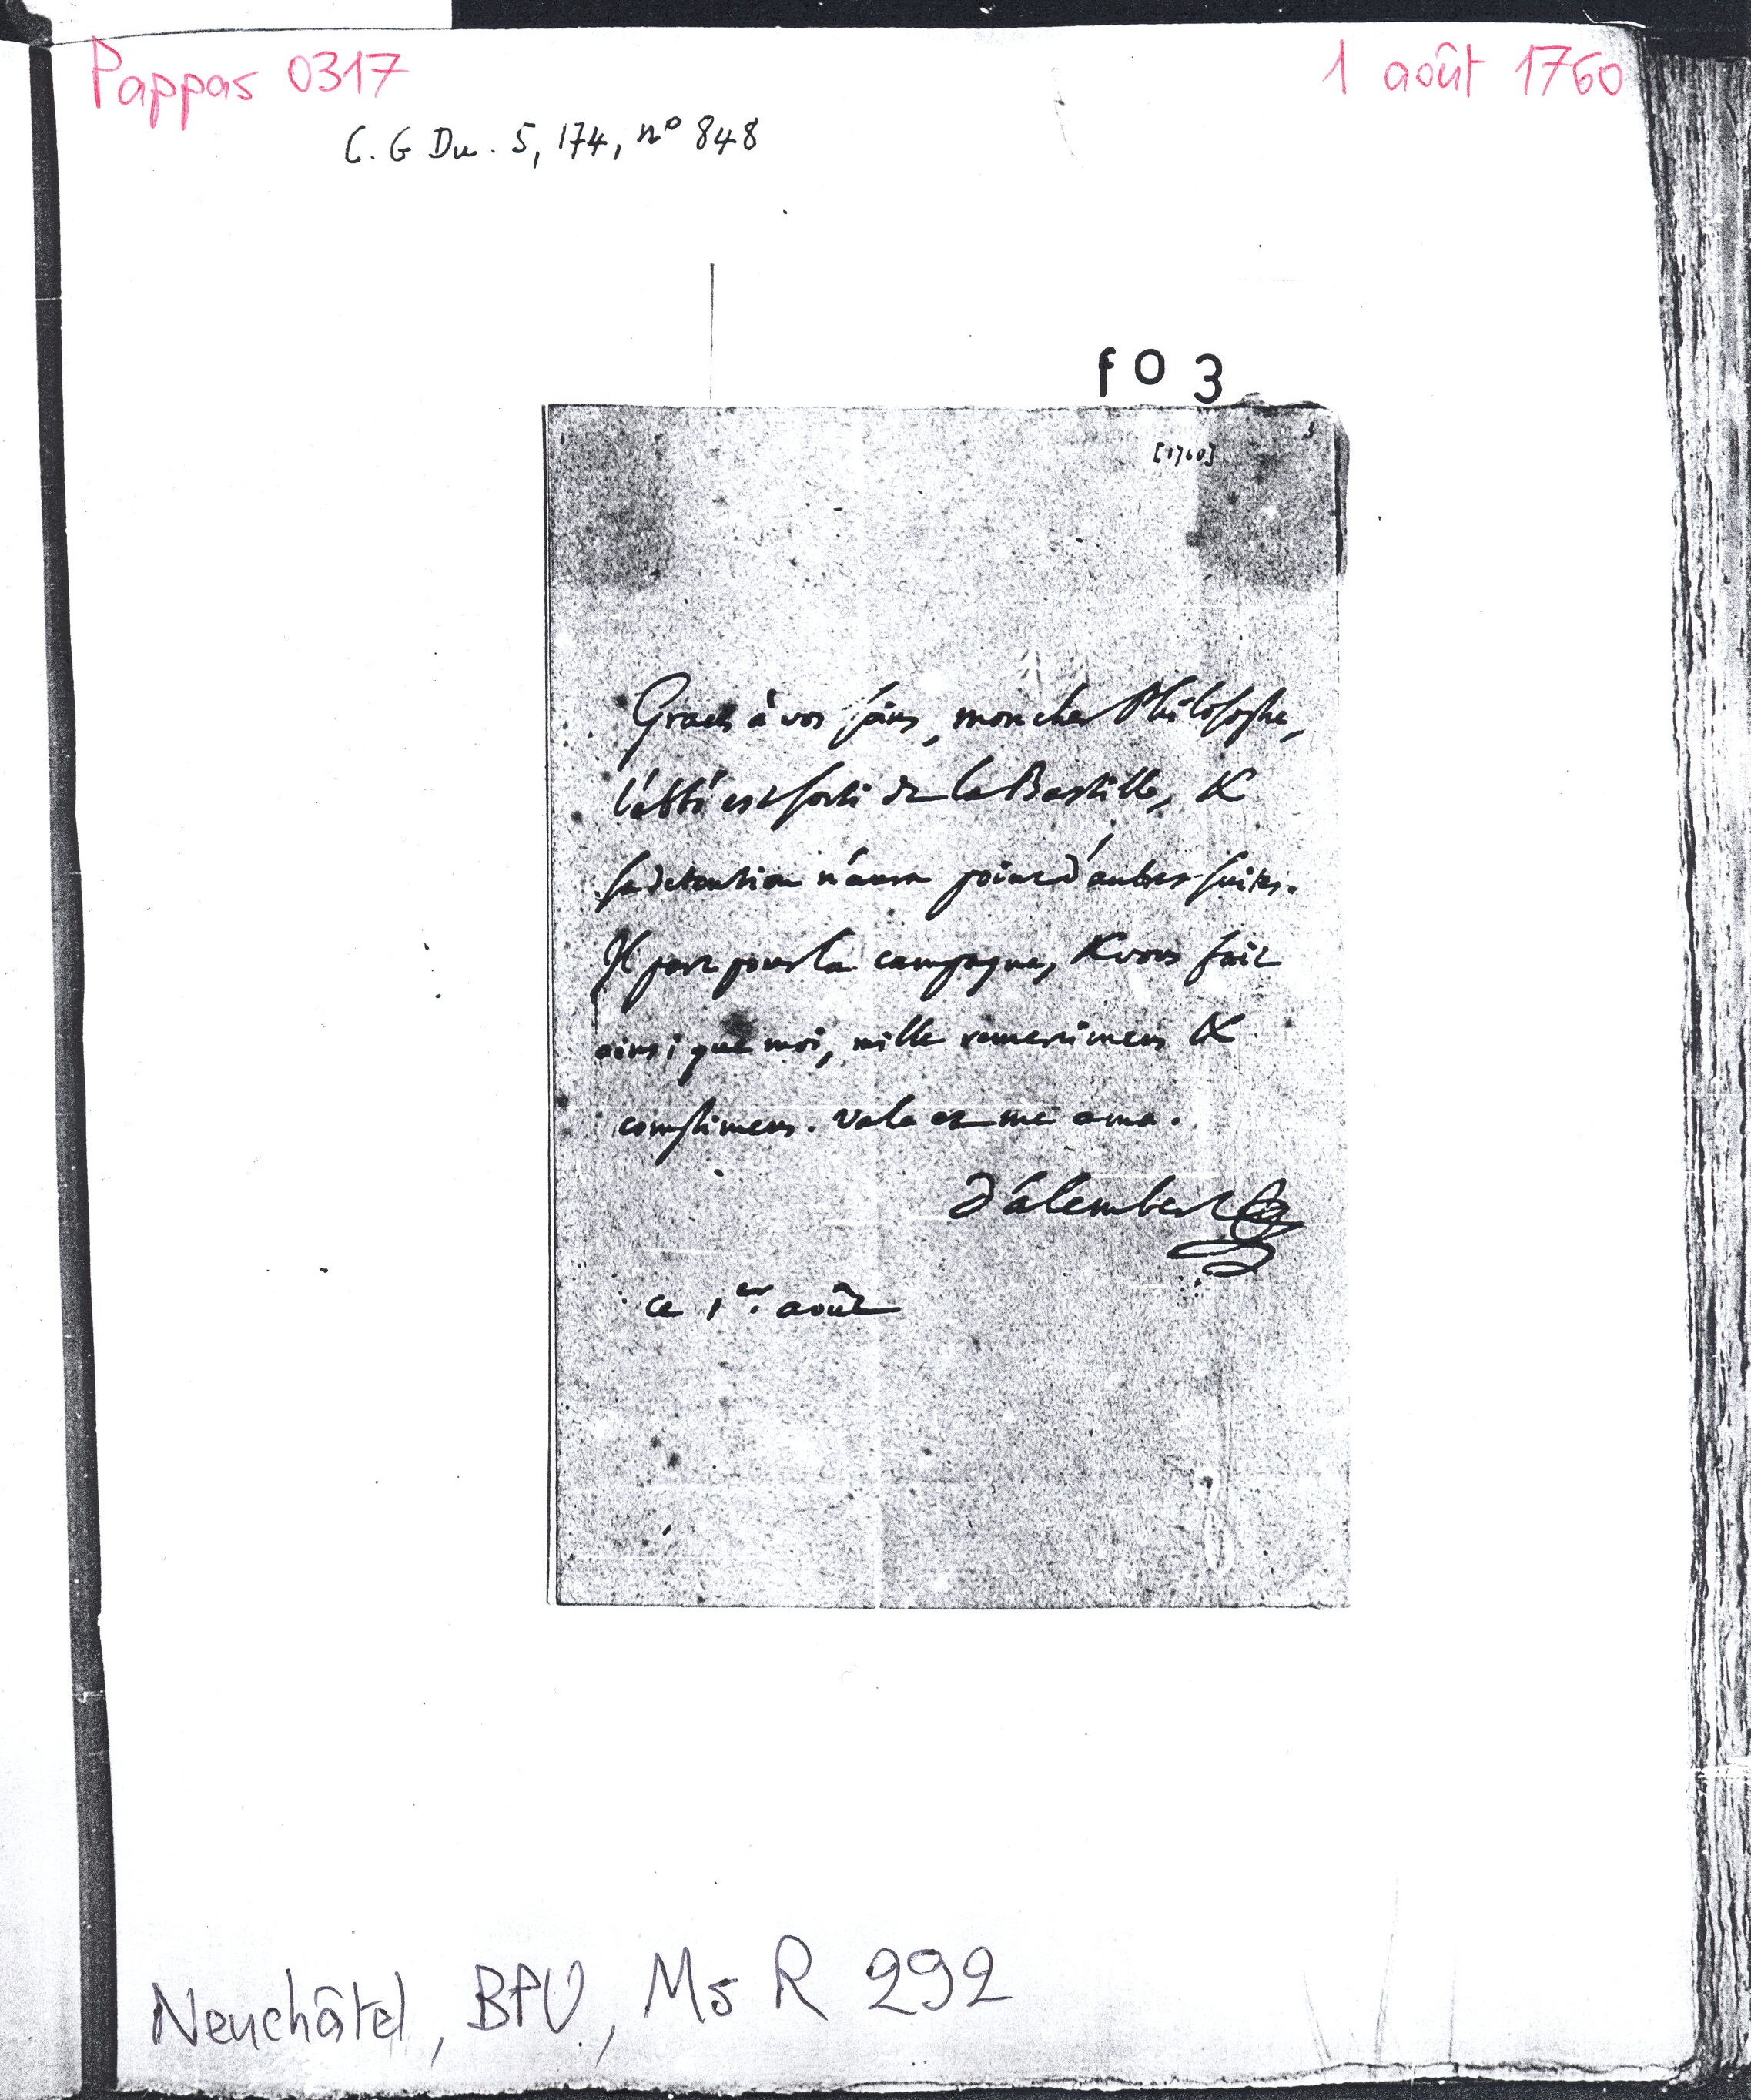 Pappas 0317
1 août 1760
C. G Du. 5, 174, n° 848
fo 3
3
[1760]
Graces à vos soins, mon cher Philosophe,
l'abbé est sorti de la Bastille, &
sa detention n'aura point d'autres suites.
Il part pour la campagne, & vous fait
ainsi que moi, mille remercimens &
complimens. Vale et me ama.
d'alembert
ce 1er. août
Neuchâtel, BPU, Ms R 292